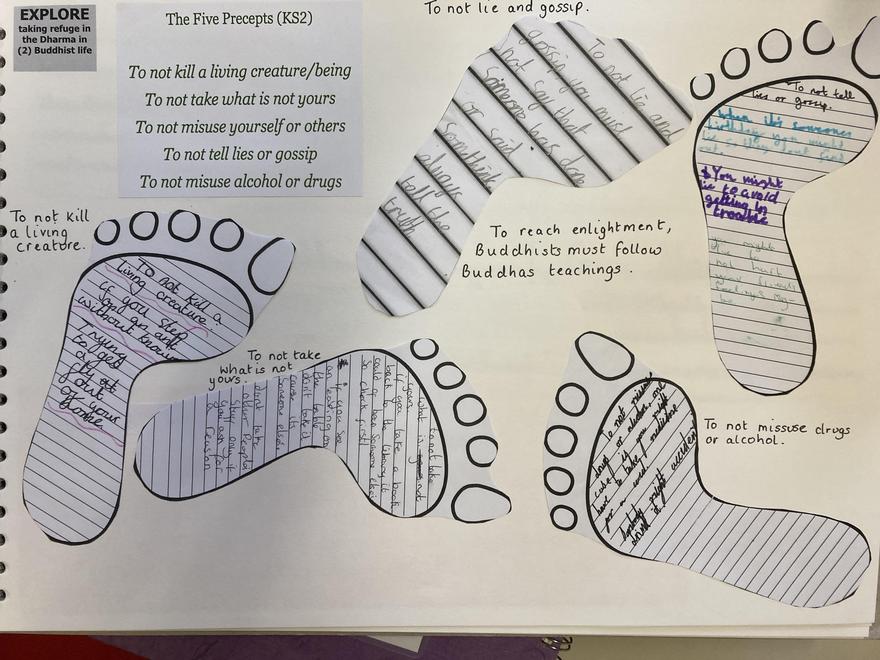 EXPLORE
taking refuge in
the Dharma in
(2) Buddhist life
The Five Precepts (KS2)
To not kill a living creature/being
To not take what is not yours
To not misuse yourself or others
To not tell lies or gossip
To not misuse alcohol or drugs
To not lie and gossip.
To not lie and
gossip you must
not say that
Someone has don
or said
somethin
always
tell the
truth
To not tell
lies or gossip.
When it's someones
birthday you might
lie so they dont find
out
You might
lie to avoid
getting in
trouble
you might
to
not hurt
To reach enlightment,
Buddhists must follow
Buddhas teachings.
To not kill
a living
creature.
To not kill a
living creature.
if you step
on an ant
without
Trying
to get
a
out
of your
To not take
what is not
yours.
To not take
what is not
yours
if you take a book
back to the library it
could of been someone elses
so check first
if you see
an
the table
don't take it
cause it's
someone elses
dont take
other People's
Stuff only if
you ask for
a reason
To not missuse drugs
or alcohol.
To not misuse
drugs or alcohol
if you might
have to take medicine
for a
might